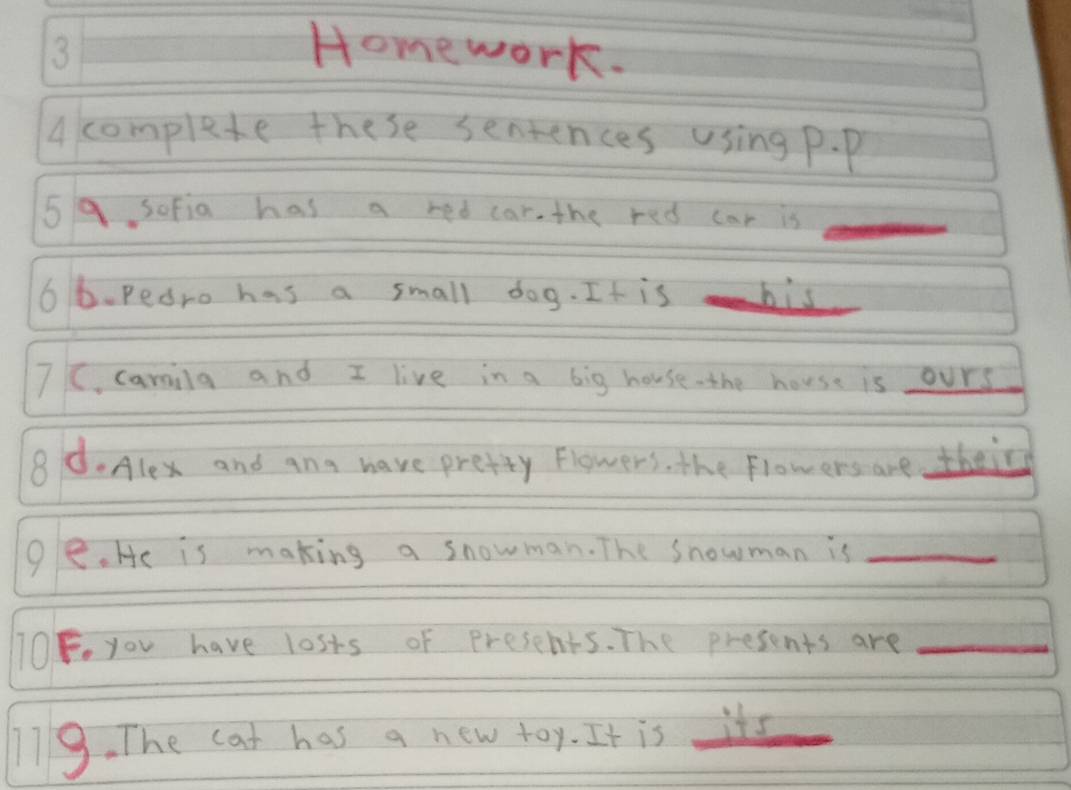 3 Homework.
4 complete these sentences using p.p
5 a. sofia has a red car. the red car is
6 b. Pedro has a small dog. It is his
7 C. camila and I live in a big house. the house is ours
8 d. Alex and ana have pretty Flowers. the Flowers are theirs
9 e. He is making a snowman. The snowman is
10 F. you have losts of presents. The presents are
11 g. The cat has a new toy. It is its